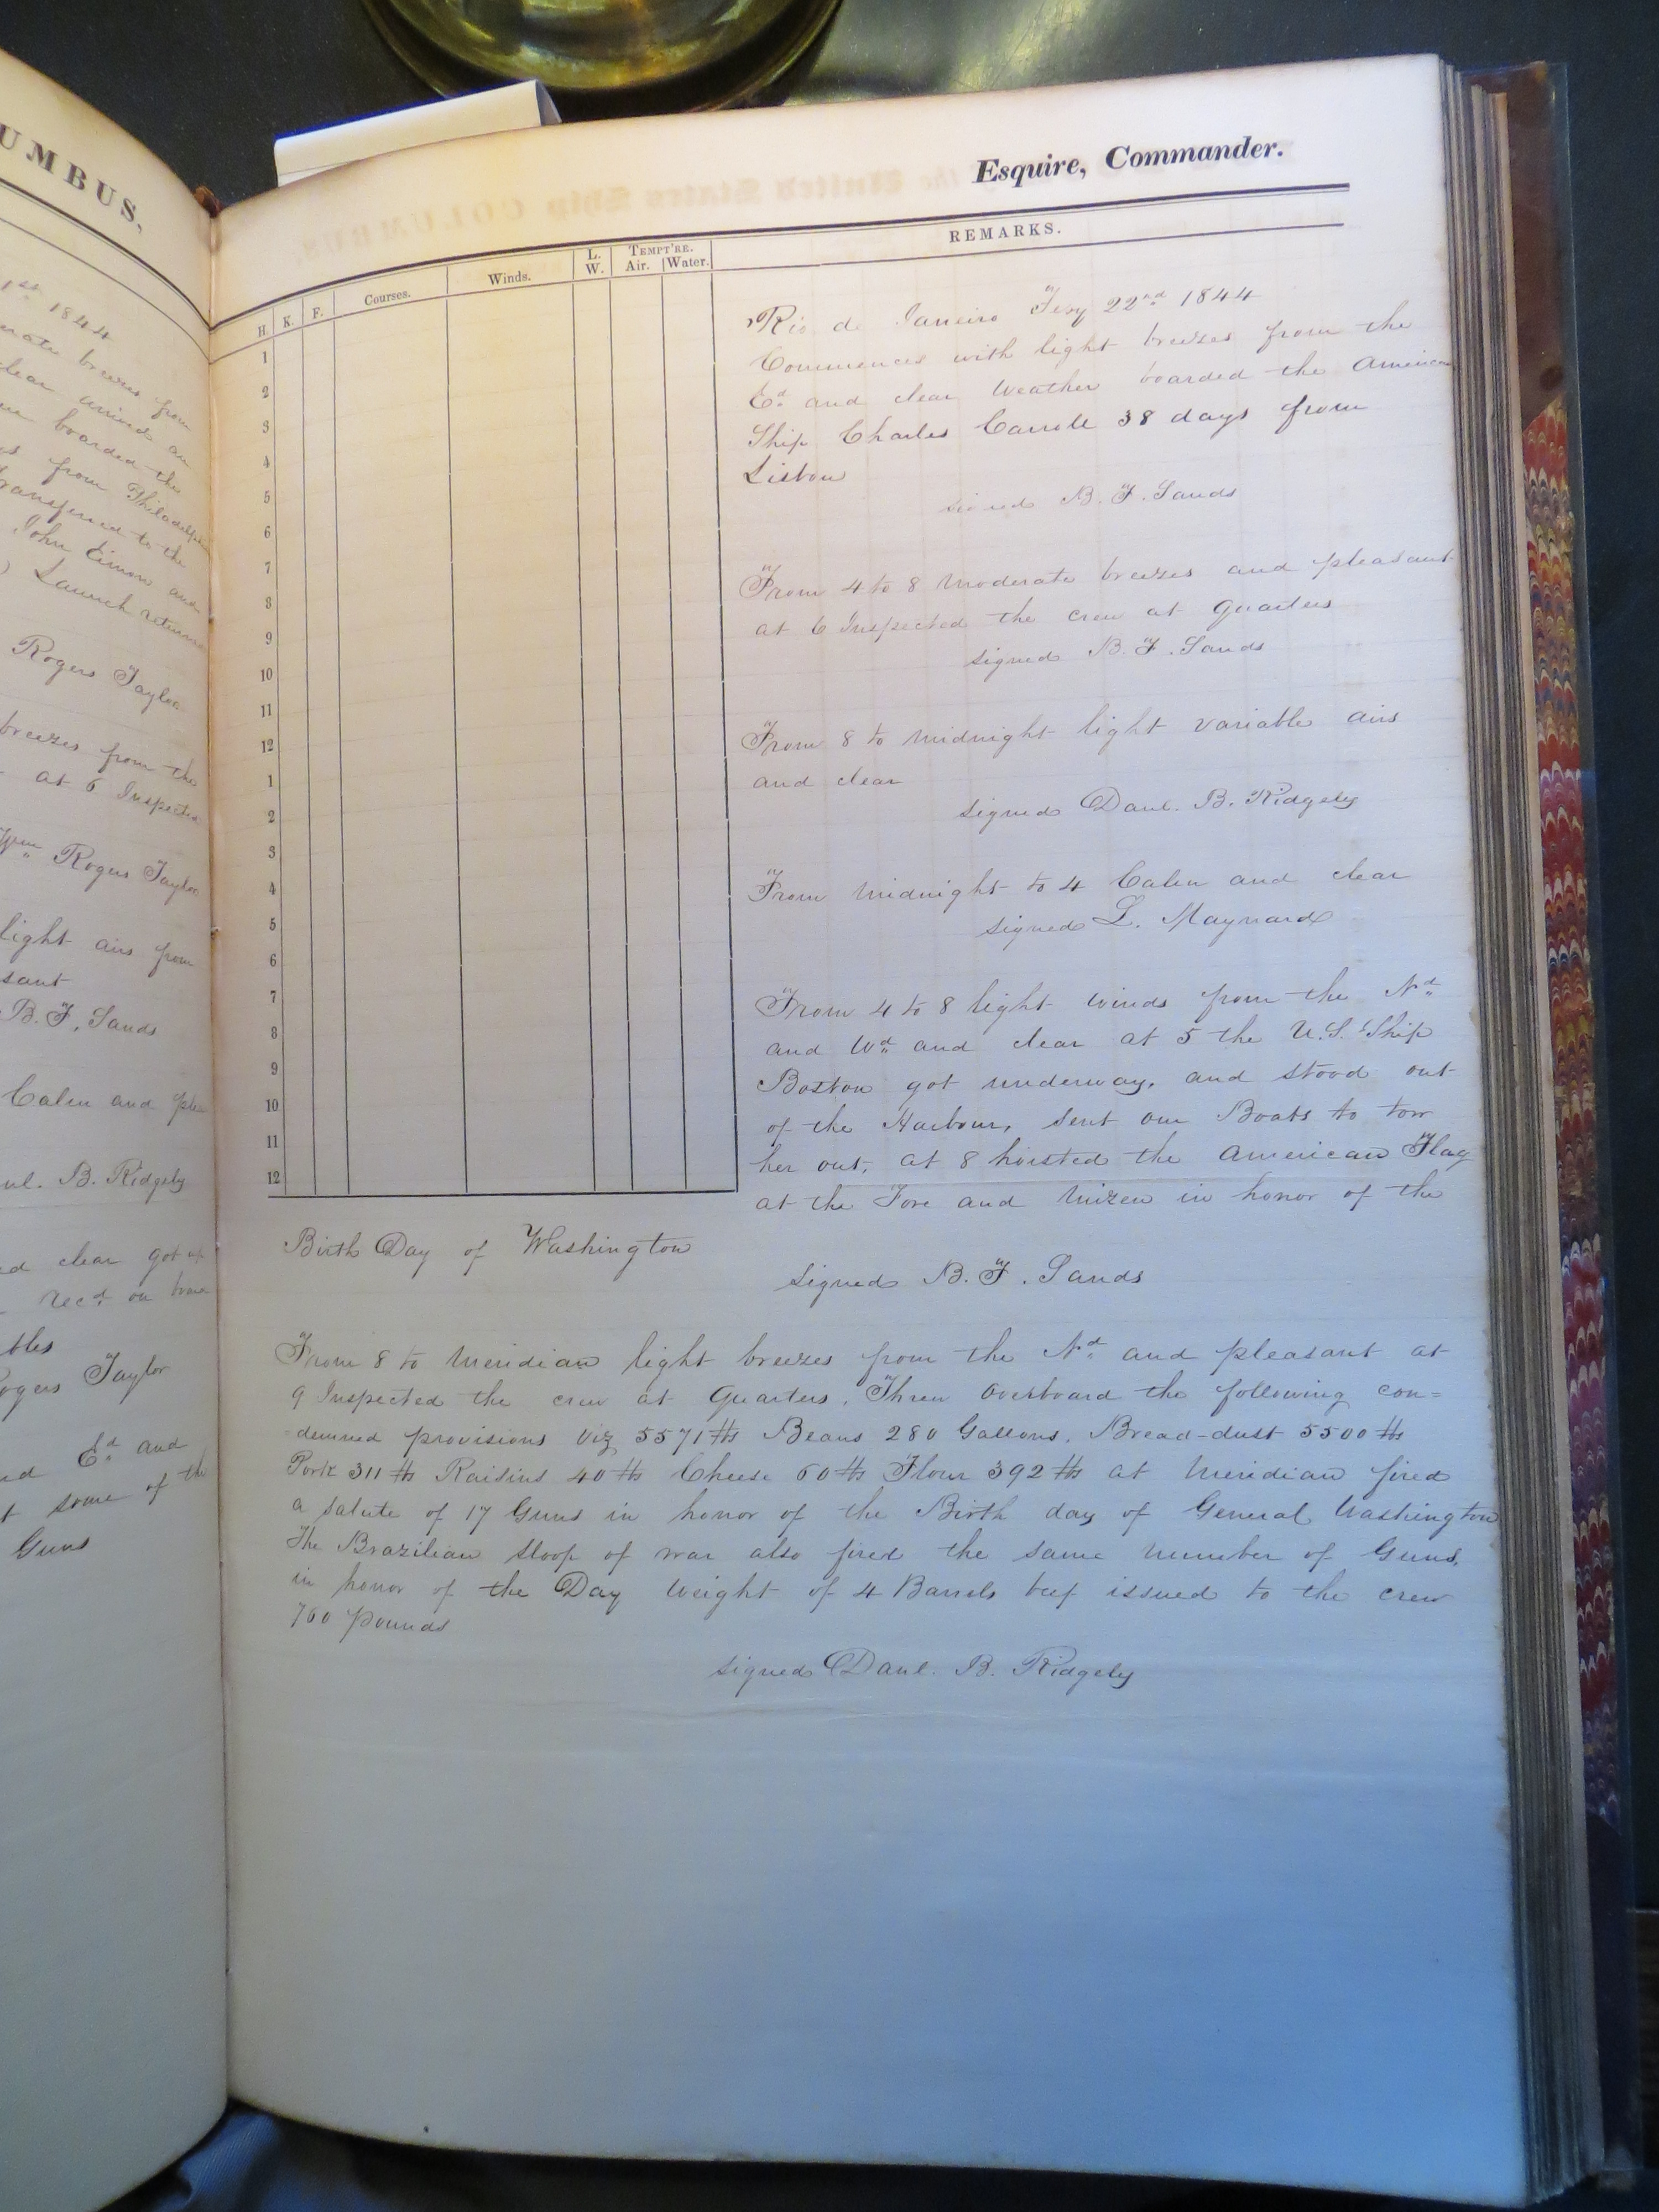 UMBUS,
1st 1844
breezes from
clear arrived an
boarded the
from Philadelphia
transferred to the
John Eimon and
Launch returned
Rogers Taylor
breezes from the
at 6 Inspected
Wm Rogers Taylor
light airs from
sant
B. F. Sands
Calm and plea
nl. B. Ridgely
ed clear got up
recd on
bles
ogers Taylor
Ed and
some of the
Guns
Esquire, Commander.
H. K. F. Courses. Winds. L. W. TEMPT'RE. Air. Water. REMARKS.
1
2
3
4
5
6
7
8
9
10
11
12
1
2
3
4
5
6
7
8
9
10
11
12
Rio de Janeiro Feby 22nd 1844
Commences with light breezes from the
Ed and clear weather boarded the American
Ship Charles Carroll 38 days from
Lisbon
signed B. F. Sands
From 4 to 8 moderate breezes and pleasant
at 6 Inspected the crew at quarters
signed B. F. Sands
From 8 to midnight light variable airs
and clear
signed Danl. B. Ridgely
From midnight to 4 Calm and clear
signed L. Maynard
From 4 to 8 light winds from the Nd
and Wd and clear at 5 the U.S. Ship
Boston got underway, and stood out
of the Harbour, sent our Boats to tow
her out, at 8 hoisted the American Flag
at the Fore and Mizen in honor of the
Birth Day of Washington
signed B. F. Sands
From 8 to Meridian light breezes from the Nd and pleasant at
9 Inspected the crew at Quarters. Threw overboard the following con=
=demned provisions Viz 5571 lbs Beans 280 Gallons. Bread-dust 5500 lbs
Pork 311 lbs Raisins 40 lbs Cheese 60 lbs Flour 392 lbs at Meridian fired
a salute of 17 Guns in honor of the Birth day of General Washington
The Brazilian sloop of war also fired the same number of Guns,
in honor of the Day Weight of 4 Barrels beef issued to the crew
760 pounds
signed Danl. B. Ridgely